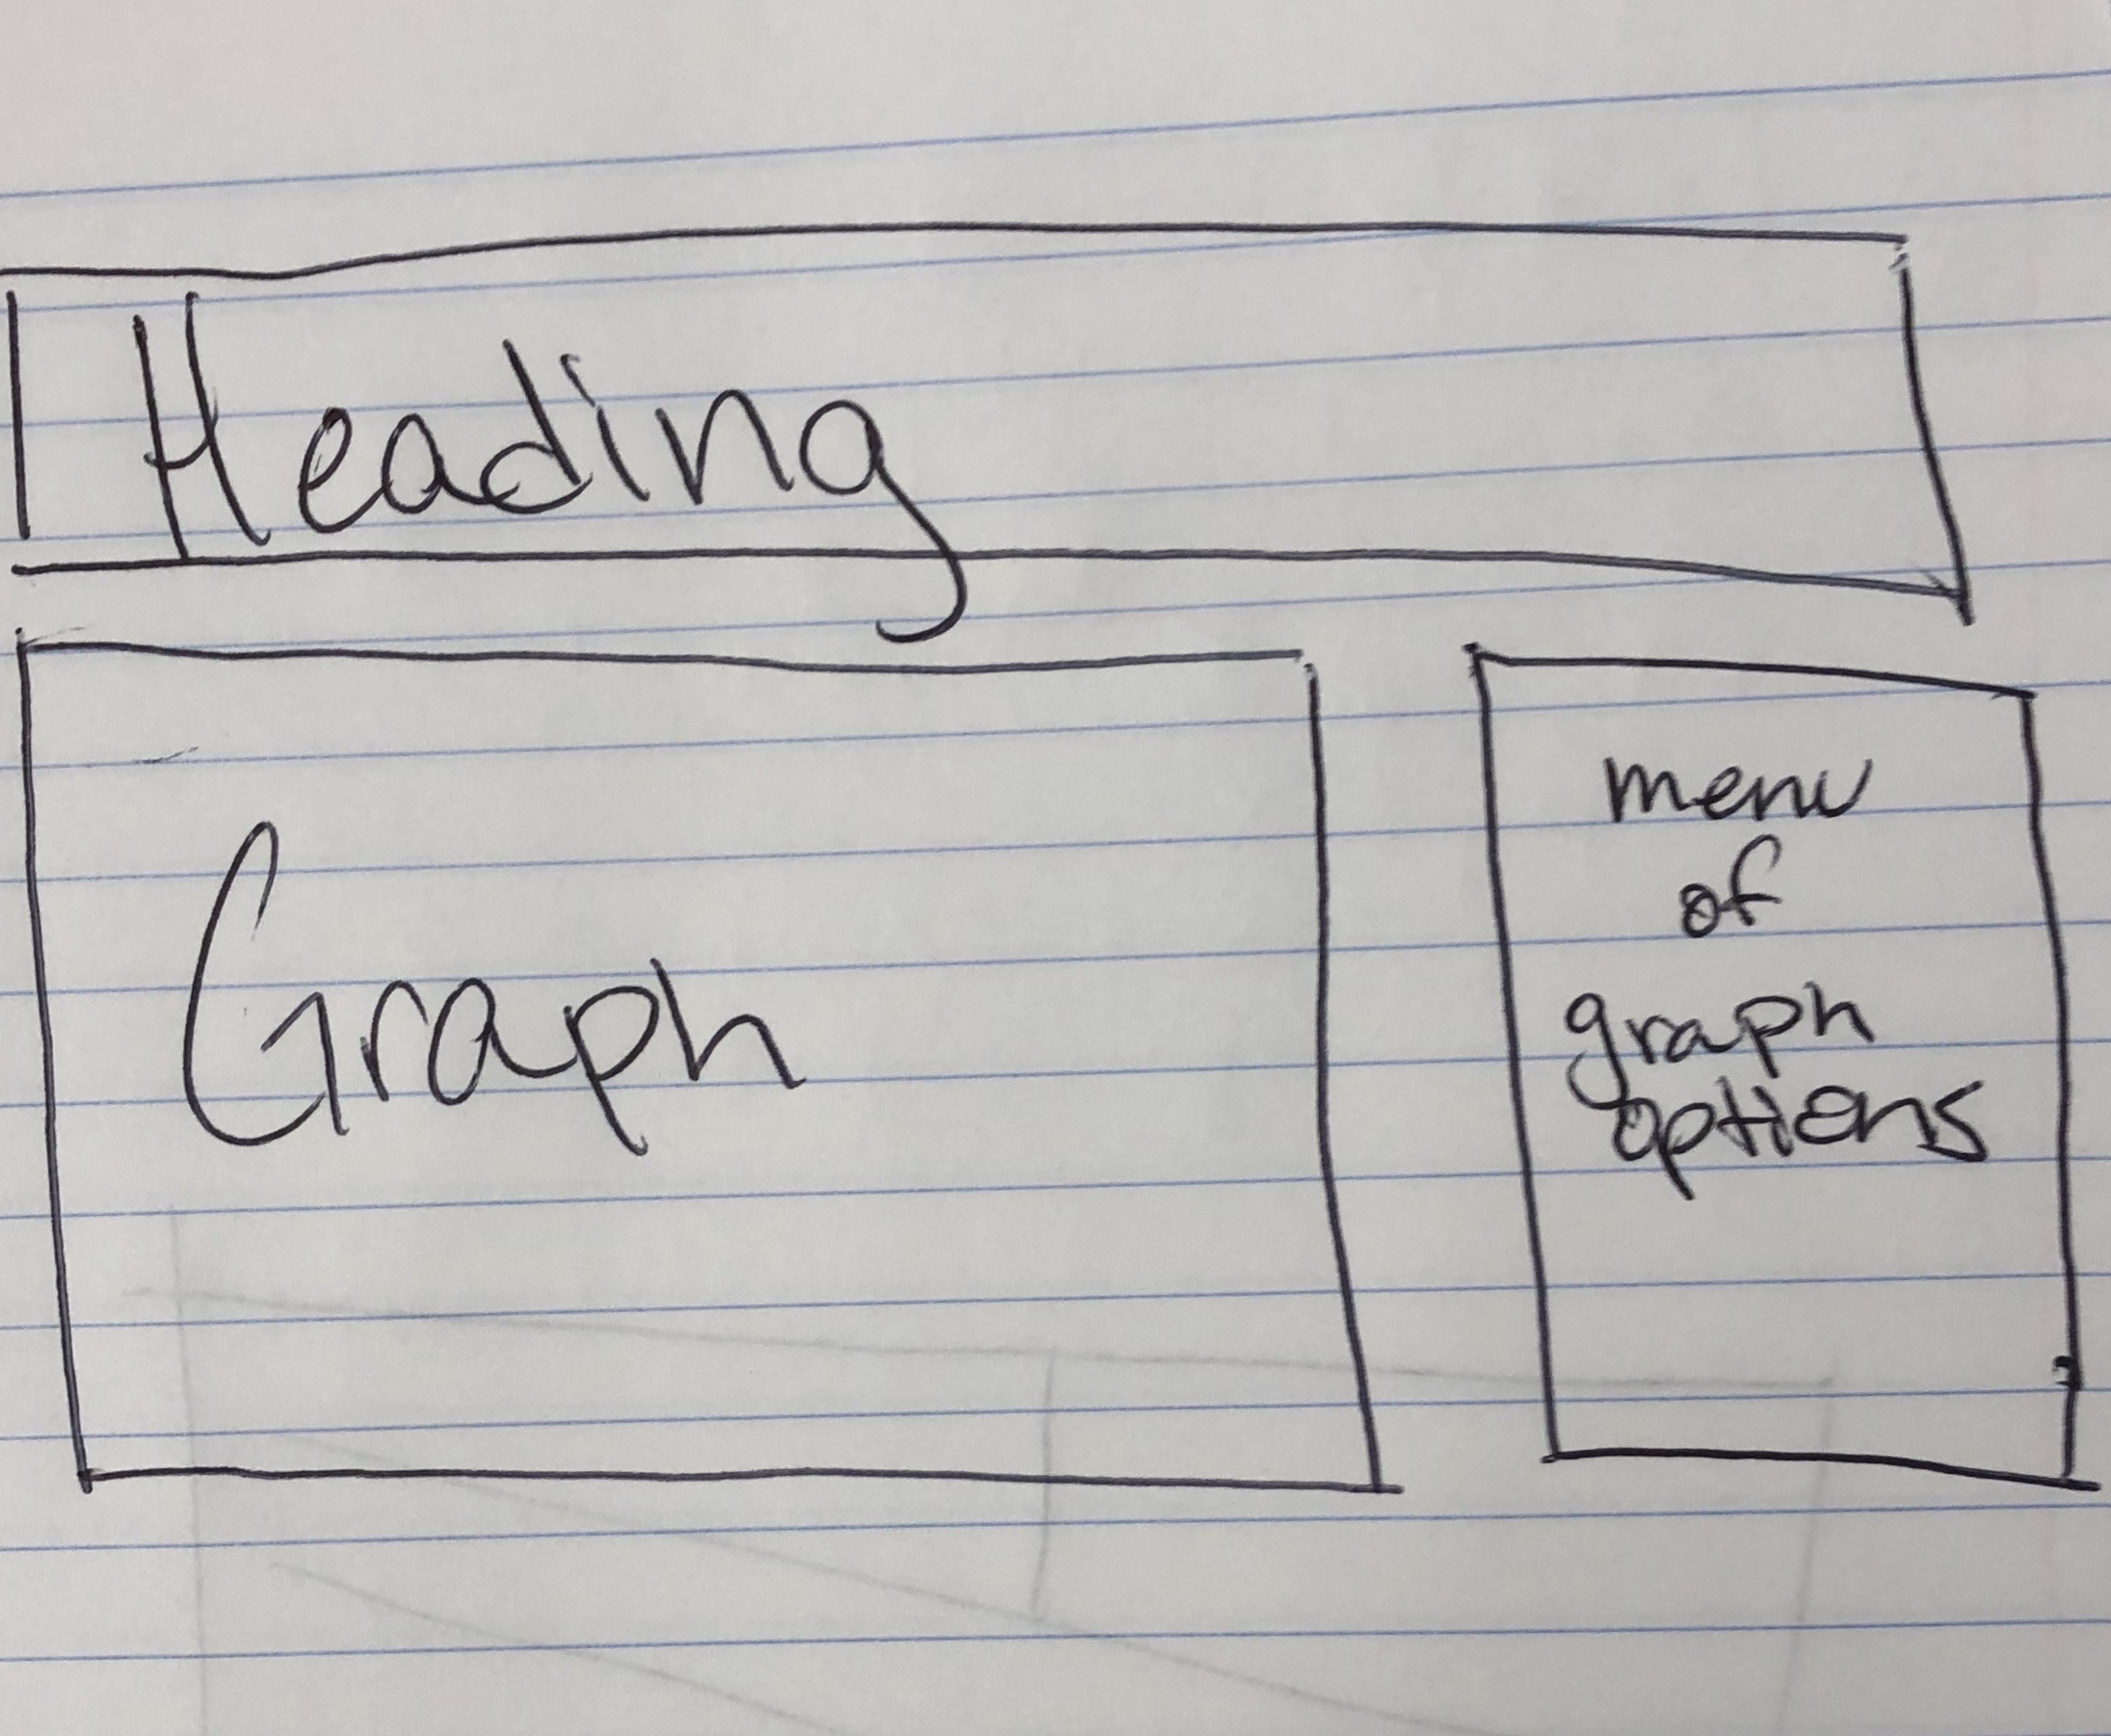 Heading
Graph
menu
of
graph
options